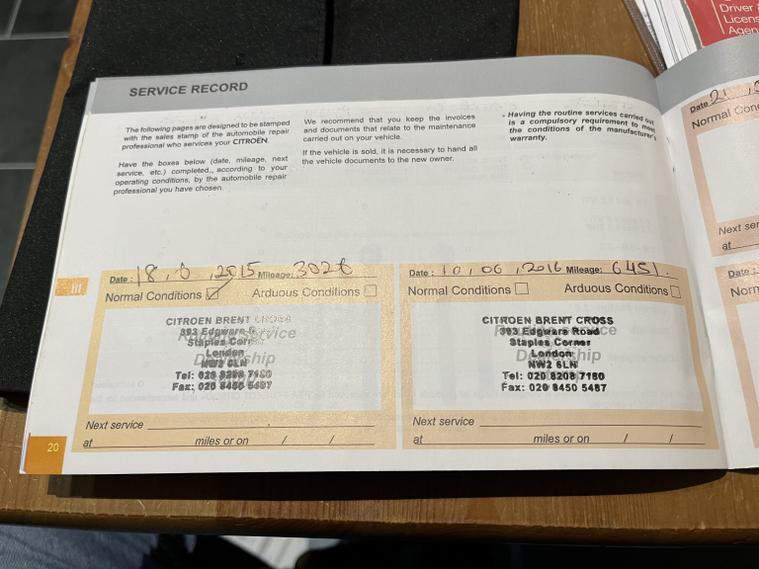 Driver &
Licens
Agen
SERVICE RECORD
The following pages are designed to be stamped
with the sales stamp of the automobile repair
professional who services your CITROËN.
Have the boxes below (date, mileage, next
service, etc.) completed, according to your
operating conditions, by the automobile repair
professional you have chosen.
We recommend that you keep the invoices
and documents that relate to the maintenance
carried out on your vehicle.
If the vehicle is sold, it is necessary to hand all
the vehicle documents to the new owner.
Having the routine services carried out
is a compulsory requirement to meet
the conditions of the manufacturer's
warranty.
Date : 18, 6 ,2015 Mileage: 3026
Normal Conditions Arduous Conditions
CITROEN BRENT CROSS
393 Edgware
Staples Corner
London
NW2 6LN
Tel: 020 8208 7180
Fax: 020 8450 5487
Next service
at miles or on / /
Date : 10, 06 , 2016 Mileage: 6451.
Normal Conditions Arduous Conditions
CITROEN BRENT CROSS
393 Edgware Road
Staples Corner
London
NW2 6LN
Tel: 020 8208 7180
Fax: 020 8450 5487
Next service
at miles or on / /
III
20
Date 21
Normal Con
Next ser
at
Date :
Norm